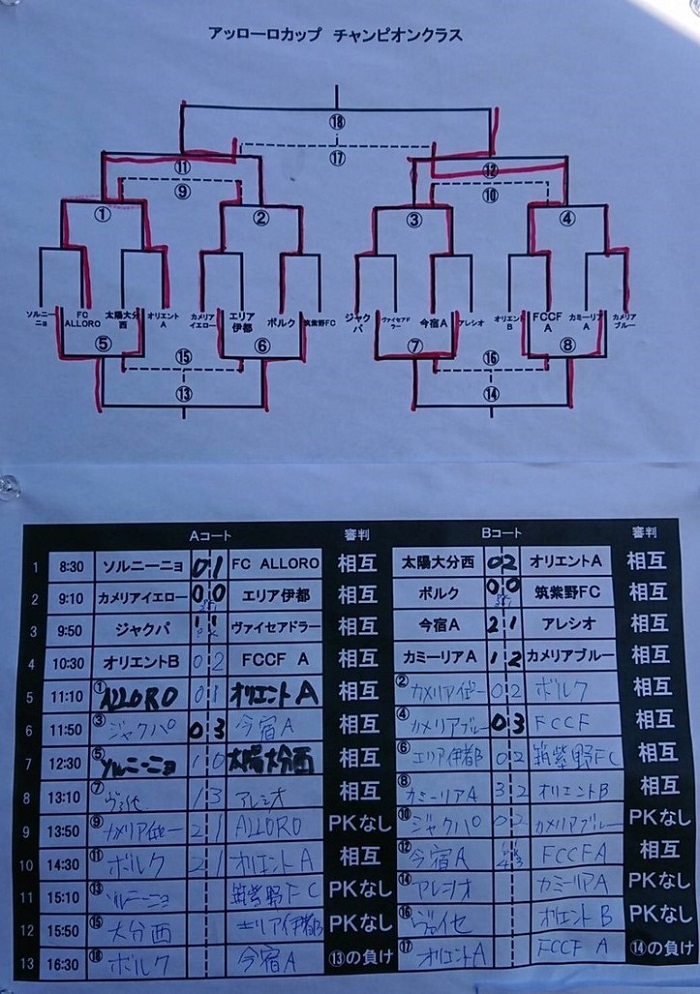 アッローロカップ チャンピオンクラス
⑱
⑰
⑪ ⑫
⑨ ⑩
① ② ③ ④
ソルニーニョ FC ALLORO 太陽大分西 オリエントA カメリアイエロー エリア伊都 ボルク 筑紫野FC ジャクパ ヴァイセアドラー 今宿A アレシオ オリエントB FCCF A カミーリアA カメリアブルー
⑤ ⑥ ⑦ ⑧
⑮ ⑯
⑬ ⑭
Aコート 審判 Bコート 審判
1 8:30 ソルニーニョ 0 1 FC ALLORO 相互 太陽大分西 0 2 オリエントA 相互
2 9:10 カメリアイエロー 0 0 エリア伊都 相互 ボルク 0 0 筑紫野FC 相互
3 9:50 ジャクパ 1 1 ヴァイセアドラー 相互 今宿A 2 1 アレシオ 相互
4 10:30 オリエントB 0 2 FCCF A 相互 カミーリアA 1 2 カメリアブルー 相互
5 11:10 ① ALLORO 0 1 オリエントA 相互 ② カメリア 0 2 ボルク 相互
6 11:50 ③ ジャクパ 0 3 今宿A 相互 ④ カメリアブルー 0 3 FCCF 相互
7 12:30 ⑤ ソルニーニョ 1 0 太陽大分西 相互 ⑥ エリア伊都 0 2 筑紫野FC 相互
8 13:10 ⑦ 1 3 アレシオ 相互 ⑧ カミーリアA 3 2 オリエントB 相互
9 13:50 ⑨ カメリア 2 1 ALLORO PKなし ⑩ ジャクパ 0 2 カメリアブルー PKなし
10 14:30 ⑪ ボルク 2 1 オリエントA 相互 ⑫ 今宿A FCCFA 相互
11 15:10 ⑬ ソルニーニョ 筑紫野FC PKなし ⑭ アレシオ カミーリアA PKなし
12 15:50 ⑮ 大分西 エリア伊都 PKなし ⑯ オリエントB PKなし
13 16:30 ⑱ ボルク 今宿A ⑬の負け ⑰ オリエントA FCCF A ⑭の負け